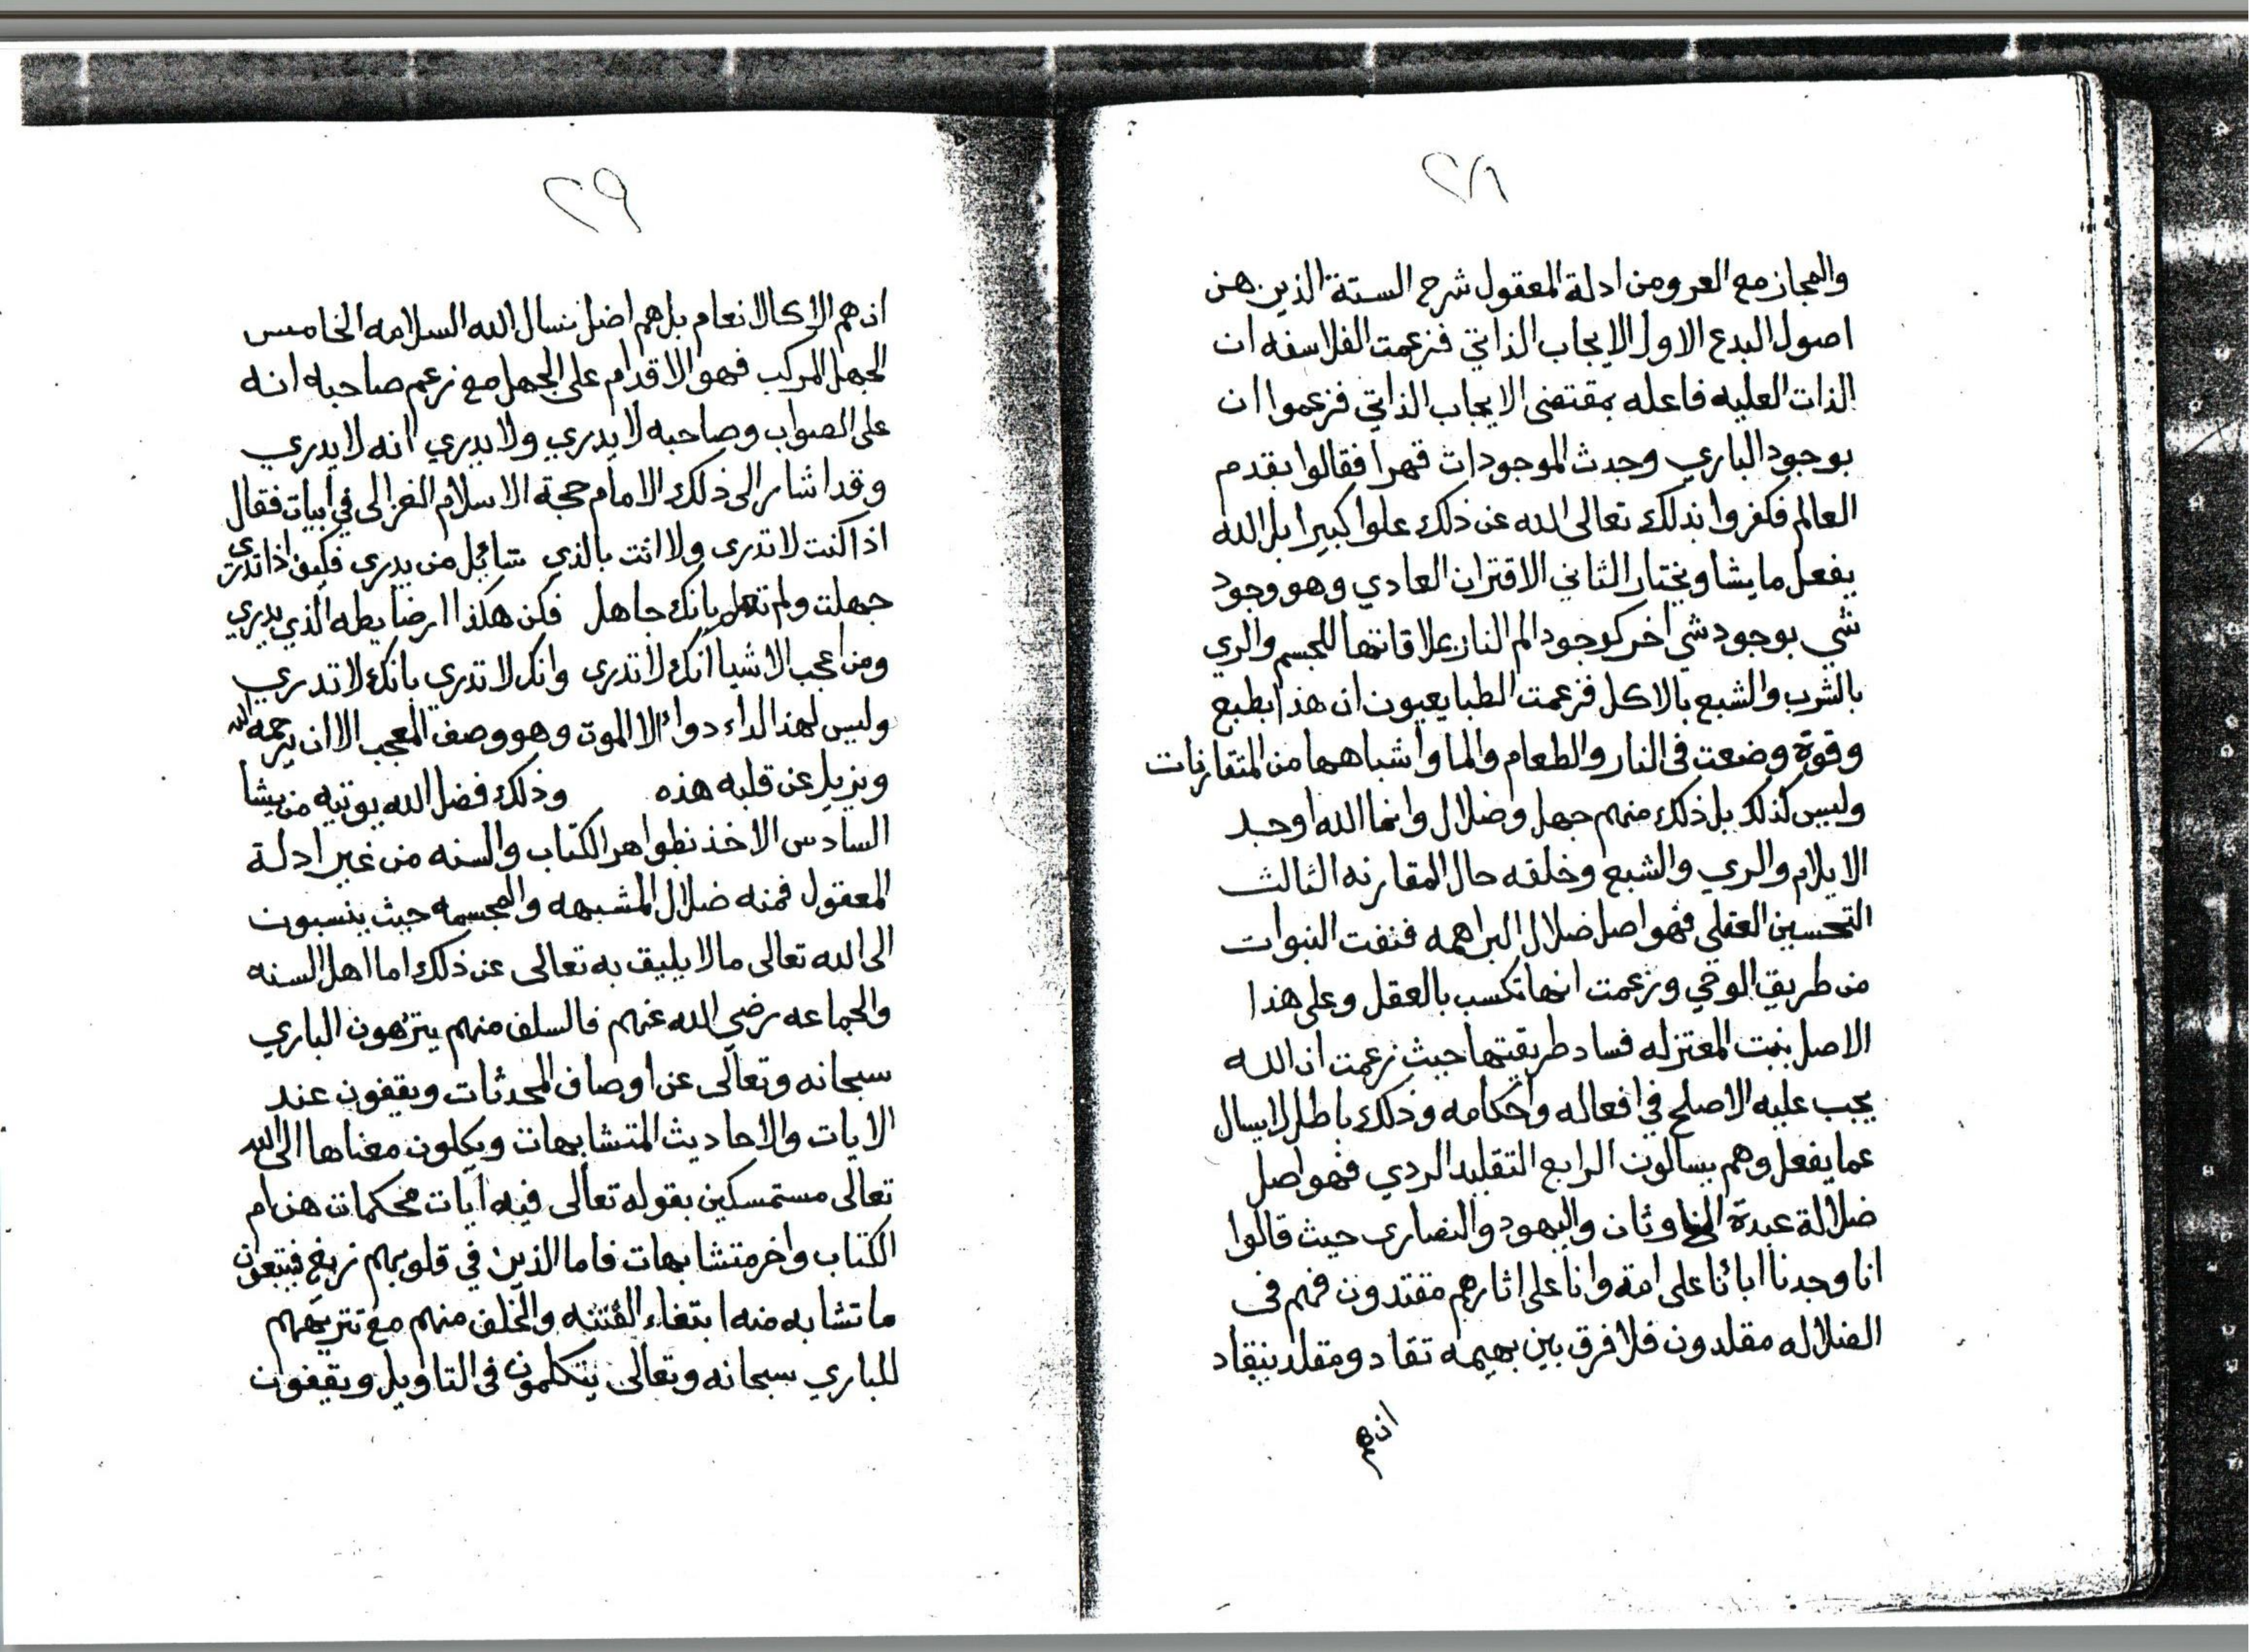 ٢٨
والمجاز مع العر ومن ادلة المعقول شرح الستة الذين هن
اصول البدع الاول الايجاب الذاتي فزعمت الفلاسفه ان
الذات العليه فاعله بمقتضى الايجاب الذاتي فزعموا ان
بوجود الباري وجدت الموجودات قهرا فقالوا بقدم
العالم فكفروا بذلك تعالى الله عن ذلك علوا كبيرا بل الله
يفعل ما يشا ويختار الثاني الاقتران العادي وهو وجود
شي بوجود شي اخر كوجود الم النار بملاقاتها للجسم والري
بالشرب والشبع بالاكل فزعمت الطبايعيون ان هذا بطبع
وقوة وضعت في النار والطعام والما واشباهها من المتقارنات
وليس كذلك بل ذلك منهم جهل وضلال وانما الله اوجد
الايلام والري والشبع وخلقه حال المقارنه الثالث
التحسين العقلي فهو اصل ضلال البراهمه فنفت النبوات
من طريق الوحي وزعمت انها تكسب بالعقل وعلى هذا
الاصل بنت المعتزله فساد طريقتها حيث زعمت ان الله
يجب عليه الاصلح في افعاله واحكامه وذلك باطل لا يسال
عما يفعل وهم يسالون الرابع التقليد الردي فهو اصل
ضلالة عبدة الاوثان واليهود والنصارى حيث قالوا
انا وجدنا ابائنا على امة وانا على اثارهم مقتدون فهم في
الضلاله مقلدون فلا فرق بين بهيمه تقاد ومقلد ينقاد
ان هم
٢٩
ان هم الا كالانعام بل هم اضل نسال الله السلامه الخامس
الجهل المركب فهو الاقدام على الجهل مع زعم صاحبه انه
على الصواب وصاحبه لا يدري ولا يدري انه لا يدري
وقد اشار الى ذلك الامام حجة الاسلام الغزالى في ابيات فقال
اذا كنت لا تدرى ولا انت بالذي سائل من يدرى فكيف اذا تدرى
جهلت ولم تعلم بانك جاهل فكن هكذا ارضا يطه الذي يدري
ومن اعجب الاشيا انك لا تدرى وانك لا تدرى بانك لا تدري
وليس لهذا الداء دواء الا الموت وهو وصف المعجب الا ان يرحمه الله
ويزيل عن قلبه هذه وذلك فضل الله يوتيه من يشا
السادس الاخذ بظواهر الكتاب والسنه من غير ادلة
المعقول فمنه ضلال المشبهه والمجسمه حيث ينسبون
الى الله تعالى ما لا يليق به تعالى عن ذلك اما اهل السنه
والجماعه رضي الله عنهم فالسلف منهم ينزهون الباري
سبحانه وتعالى عن اوصاف المحدثات ويقفون عند
الايات والاحاديث المتشابهات ويكلون معناها الى الله
تعالى مستمسكين بقوله تعالى فيه ايات محكمات هن ام
الكتاب واخر متشابهات فاما الذين في قلوبهم زيغ فيتبعون
ما تشابه منه ابتغاء الفتنه والخلف منهم مع تنزيههم
للباري سبحانه وتعالى يتكلمون في التاويل ويقفون